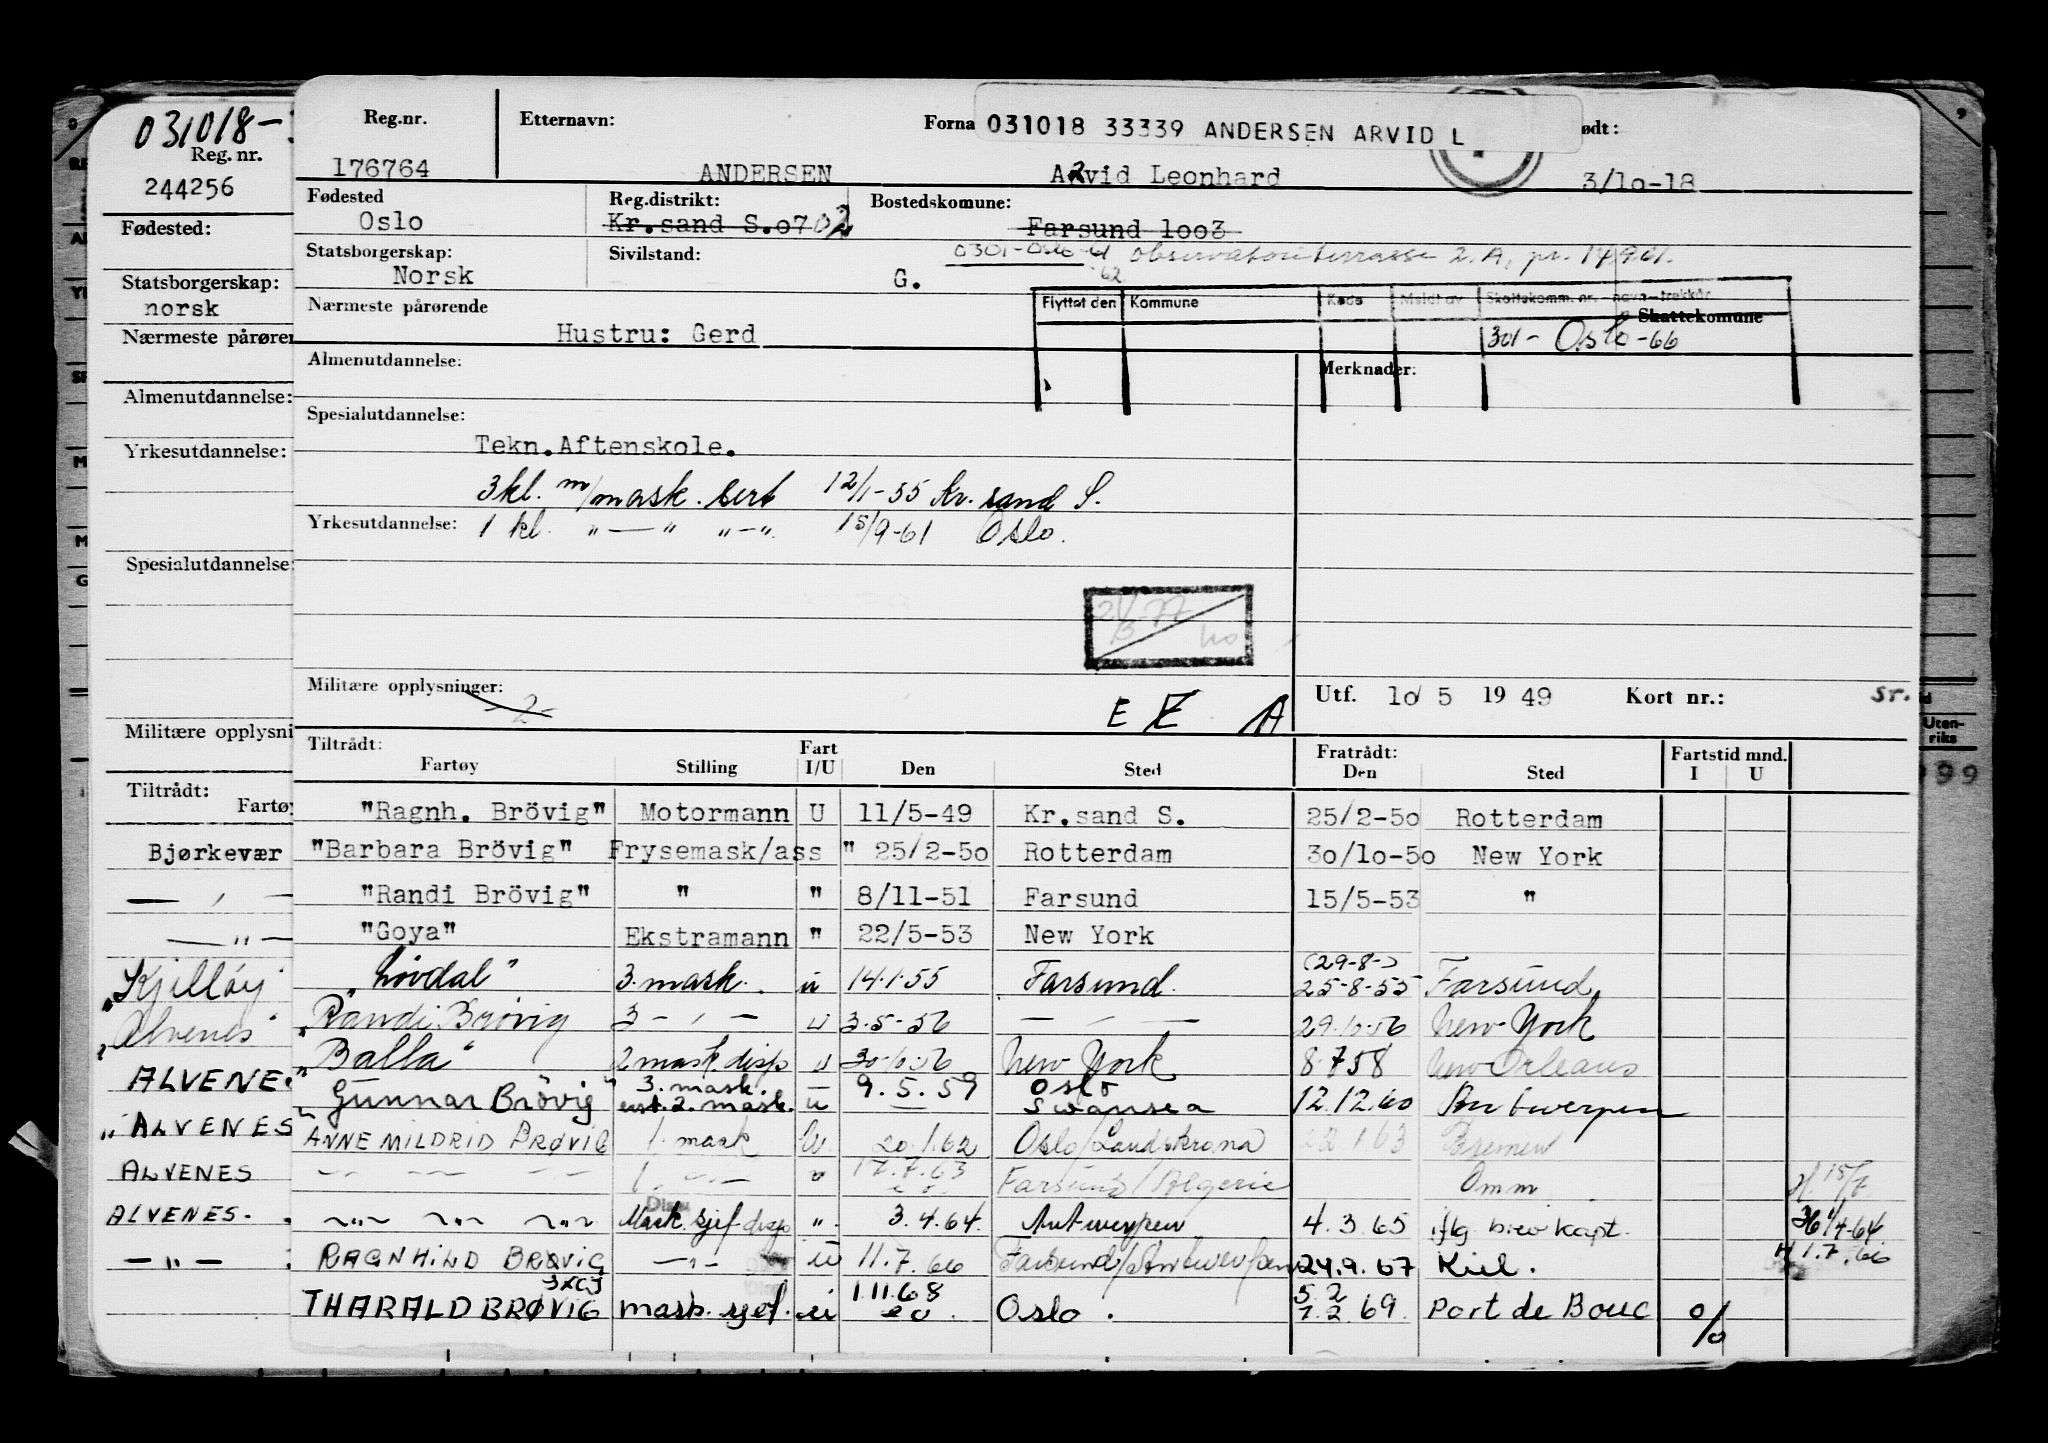 031018-
Reg. nr.
244256
Fødested:
Statsborgerskap:
norsk
Nærmeste pårøren
Almenutdannelse:
Yrkesutdannelse:
Spesialutdannelse:
Militære opplysni
Tiltrådt:
Fartøy
Bjørkevær
— , —
— " —
"Kjelløy
"Alvenes"
ALVENES
"ALVENES
ALVENES
ALVENES.
— " —
Reg.nr. Etternavn: Forna 031018 33339 ANDERSEN ARVID L ødt:
176764 ANDERSEN Arvid Leonhard 3/10-18
Fødested Reg.distrikt: Bostedskomune:
Oslo Kr.sand S.o702 Farsund 1oo3
Statsborgerskap: Sivilstand: 0301-Oslo-61 Observatorieterrasse 2.A, pr. 14961.
Norsk G. 62
Nærmeste pårørende Flyttet den Kommune Kode Meldt av Skattekomm. nr. - navn - trekkår
Skattekomune
Hustru: Gerd 301- Oslo-66
Almenutdannelse: Merknader:
Spesialutdannelse:
Tekn.Aftenskole.
3kl. m/mask. sert 12/1-55 Kr. sand S.
Yrkesutdannelse: 1 kl. "—" "—" 15/9-61 Oslo.
Militære opplysninger: Utf. 1o/5 1949 Kort nr.: sr.
-2- E E A
Uten-
riks
99
Tiltrådt: Fart Fratrådt: Fartstid mnd.
Fartøy Stilling I/U Den Sted Den Sted I U
"Ragnh. Brövig" Motormann U 11/5-49 Kr.sand S. 25/2-5o Rotterdam
"Barbara Brövig" Frysemask/ass " 25/2-5o Rotterdam 3o/1o-5o New York
"Randi Brövig" " " 8/11-51 Farsund 15/5-53 "
"Goya" Ekstramann " 22/5-53 New York
"Lövdal" 3. mask. u 14.1.55 Farsund. (29-8-) 25-8-55 Farsund.
"Randi Brövig 3 — , — u 3.5-56 — , — 29.10.56 New York
"Balla" 2 mask. disp u 30-10-56 New York 8.7 58 New Orleans
"Gunnar Brövig" 3. mask. 9.5.59 Oslo
enst. 2. mask. u Swansea 12.12.60 Antwerpen
ANNE MILDRID BRØVIG 1. mask u. 20.1.62 Oslo/Landskrona 22 1.63 Bremen
— " — — " — — " — 1. — " — u 17.7.63 Farsund/Algerie Omm. 15/7
— " — — " — — " — Mask. sjef disp ". 3.4.64. Antwerpen 4.3.65 iflg brev kapt. 1/4-64
RAGNHILD BRØVIG — " — u 11.7.66 Farsund/Antwerpen 24.9.67 Kiel. 1.7.66
THARALD BRØVIG mask. sjef. u 1.11.68 Oslo. 5.2 1.2.69. Port de Bouc %